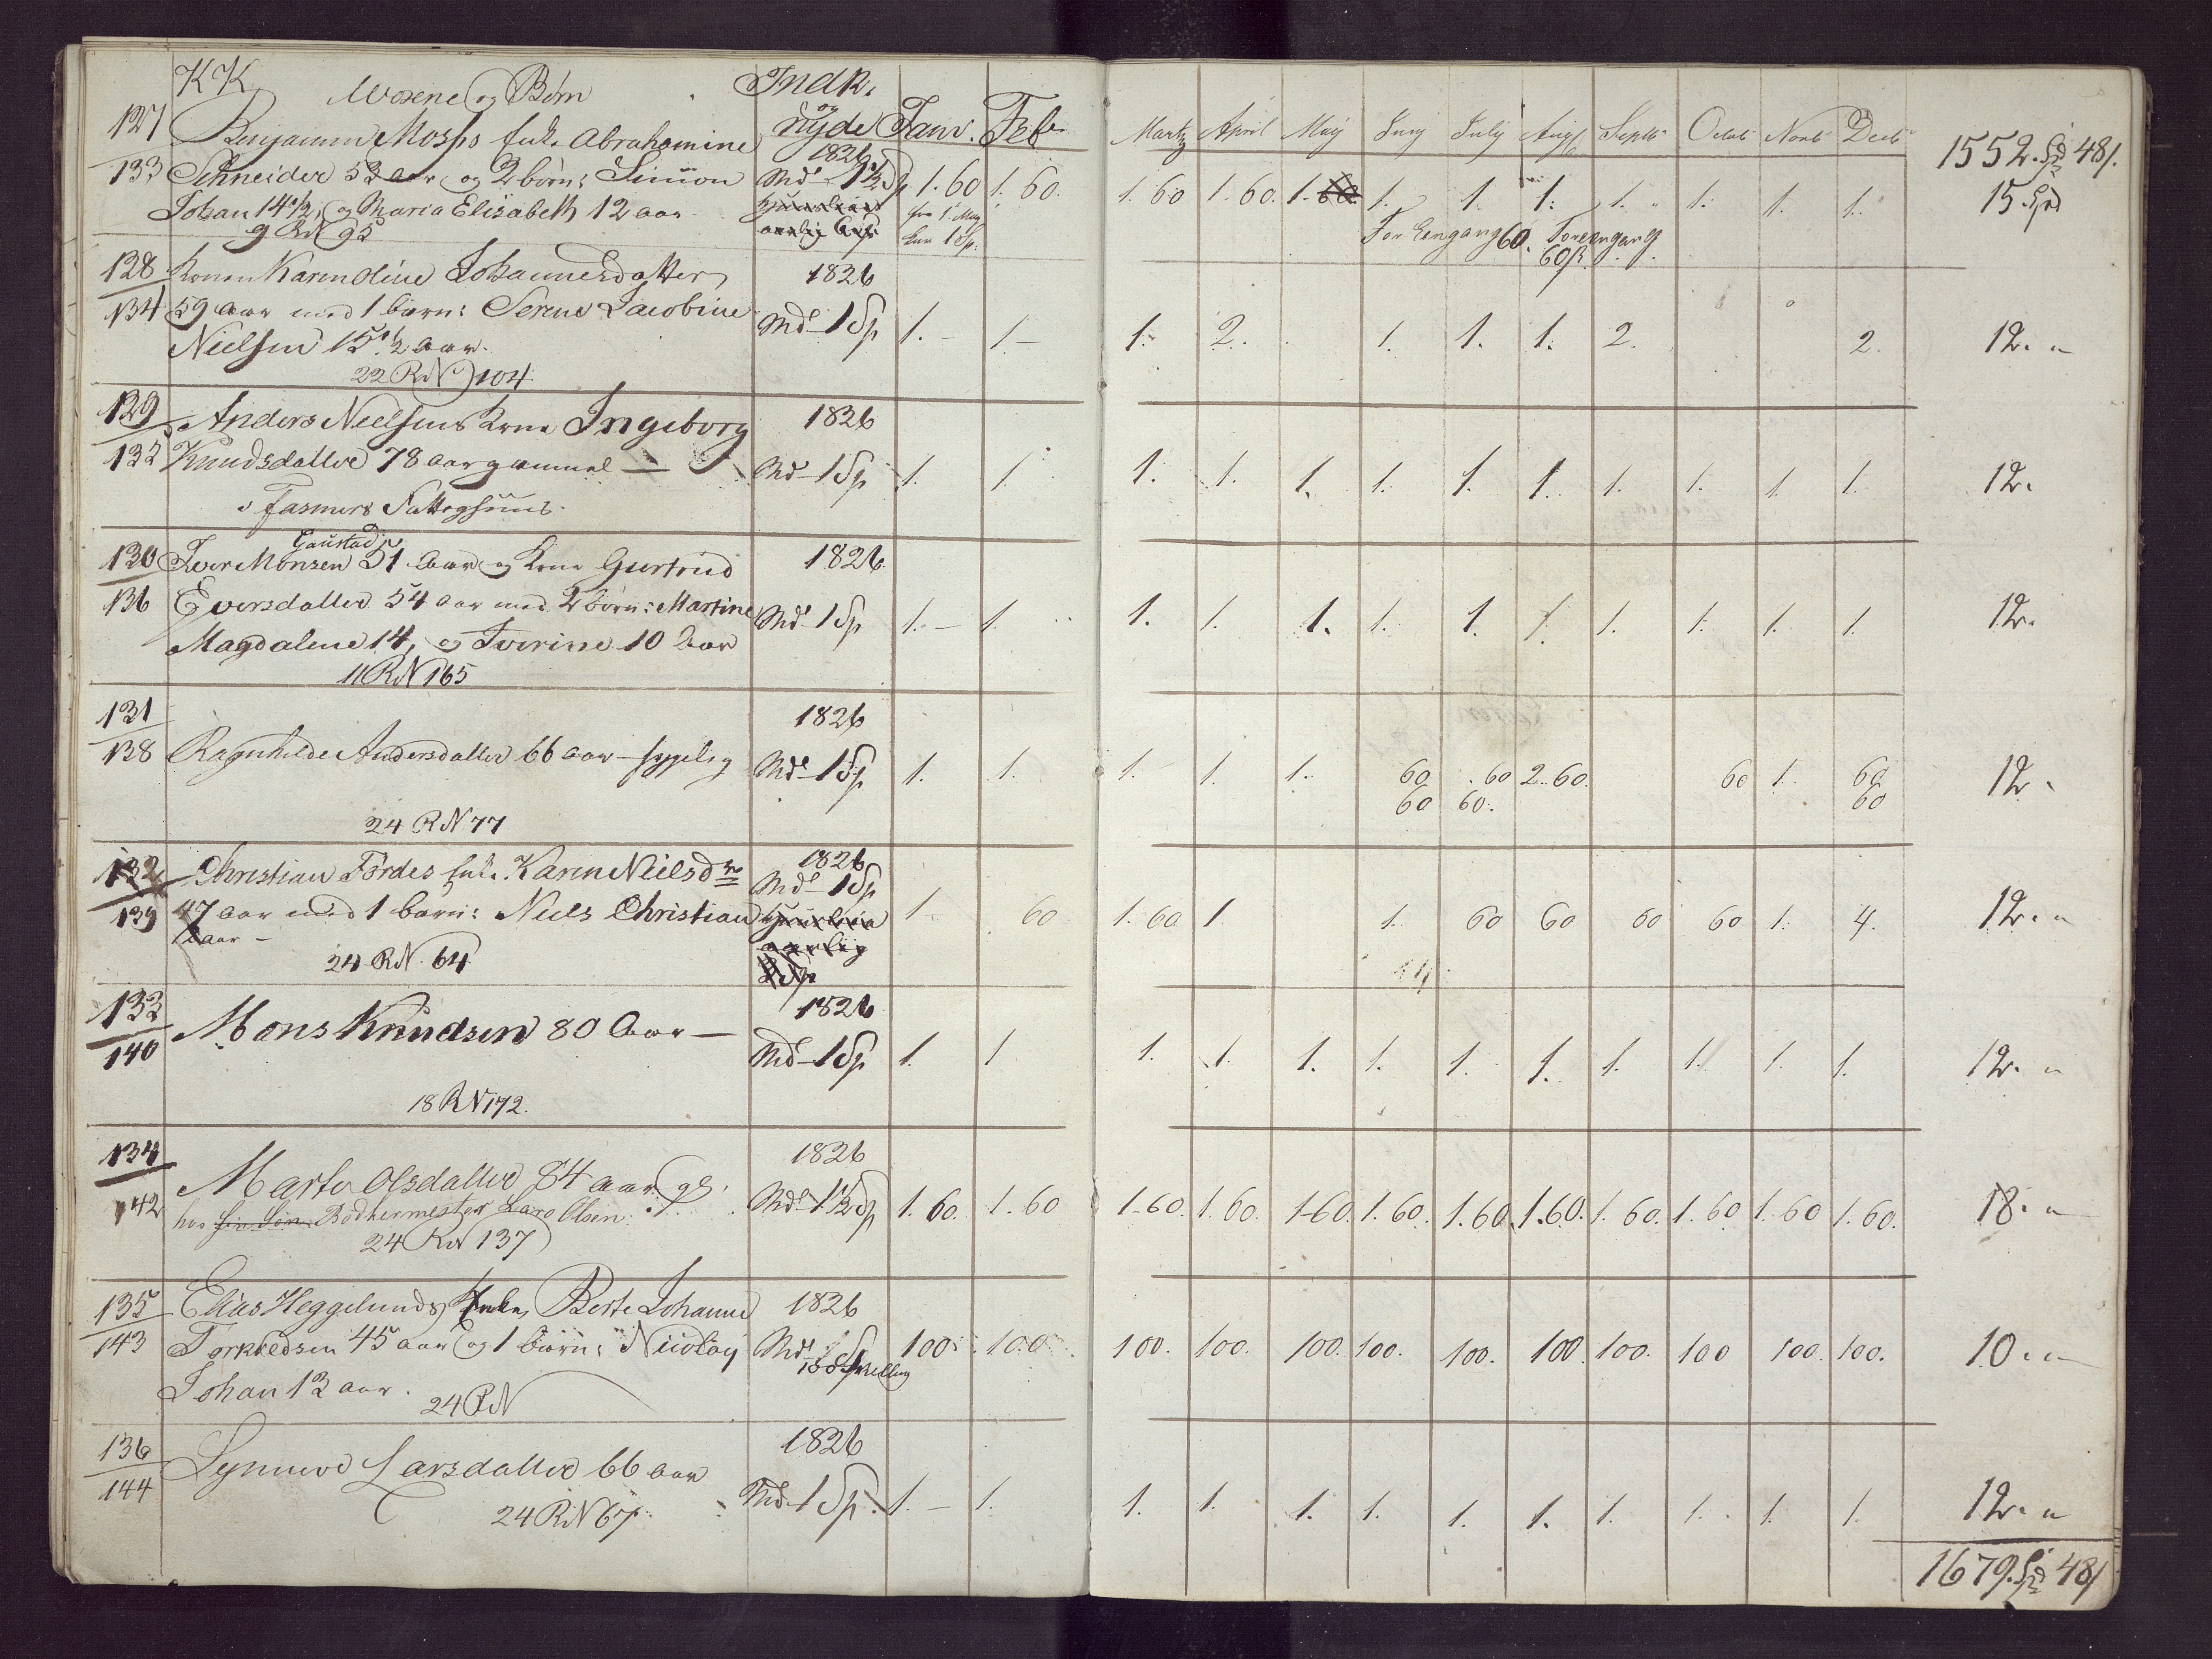 KK. Voxene og Børn Indk. og nyde Janr. Feb. Martz April May Juny July Augs Septb Octob Novb Decb 1552. Spd 48/.
127 Benjamin Moshs Enke Abrahamine 1826
133 Schneider 53 aar og 2 børn: Simon Md 1½ Sp 1.60 1.60. 1.60 1.60. 1.60 1. 1. 1. 1. 1. 1. 1. 15. Spd
Johan 14½, og Maria Elisabeth 12 aar Huusleie fra 1. May
9 RN 95 aarlig 6 Sp kun 1 Sp: For Eengang 60. For eengang 60 ß.
128 Konen Karendine Johannesdatter 1826
134 59 aar med 1 barn: Serine Jacobine Md 1 Sp 1.- 1- 1. 2. 1. 1. 1. 2. 2. 12. "
Nielsen 15½ aar.
22 RN 104.
129 Anders Nielsens Kone Ingeborg 1826
132 Knudsdatter 78 aar gammel — Md 1 Sp 1. 1. 1. 1. 1. 1. 1. 1. 1. 1. 1. 1. 12.
i Fasmers Fattighuus.
Gaustad
130 Iver Monsen 51. Aar og Kone Gurtrud 1826
136 Eversdatter 54 aar med 2 børn: Martine Md 1 Sp 1.- 1. 1. 1. 1. 1. 1. 1. 1. 1. 1. 1. 12.
Magdalene 14, og Iverine 10 Aar
11 RN 165
131 1826
138 Ragnhilde Andersdatter 66 aar - sygelig Md 1 Sp 1. 1. 1. 1. 1. 60 60 2.60. 60 1. 60 12.
60 60. 60
24 RN 77
132 Christian Fördes Enke Karen Nielsdr 1826 Md 1 Sp
139 47 aar med 1 barn: Niels Christian Huusleie 1. 60 1.60 1 1. 60 60 60 60 1. 4. 12. "
aar - aarlig
24 RN. 64
133 Mons Knudsen 80 Aar — 1826
140 Md 1 Sp 1. 1 1. 1. 1. 1. 1. 1. 1. 1. 1. 1. 12. "
18 RN 172.
134 1826
142 Marte Olsdatter 84 aar gl. Md 1½ Sp 1.60. 1.60 1.60. 1.60. 1.60. 1.60. 1.60. 1.60. 1.60. 1.60 1.60 1.60. 18. "
hos sin Søn Bødkermester Lars Olsen
24 RN 137
135 Elias Heggelunds Enke, Berte Johanne 1826
143 Torkildsen 45 aar og 1 barn: Nicolay Md 100 Skilling 100. 100. 100. 100. 100. 100. 100. 100. 100. 100 100. 100. 10. "
Johan 12 aar.
24 RN
136 1826
144 Synneve Larsdatter 66 aar Md 1 Sp. 1. - 1. 1. 1. 1. 1. 1. 1. 1. 1. 1. 1. 12. "
24 RN 67.
1679. Spd 48/